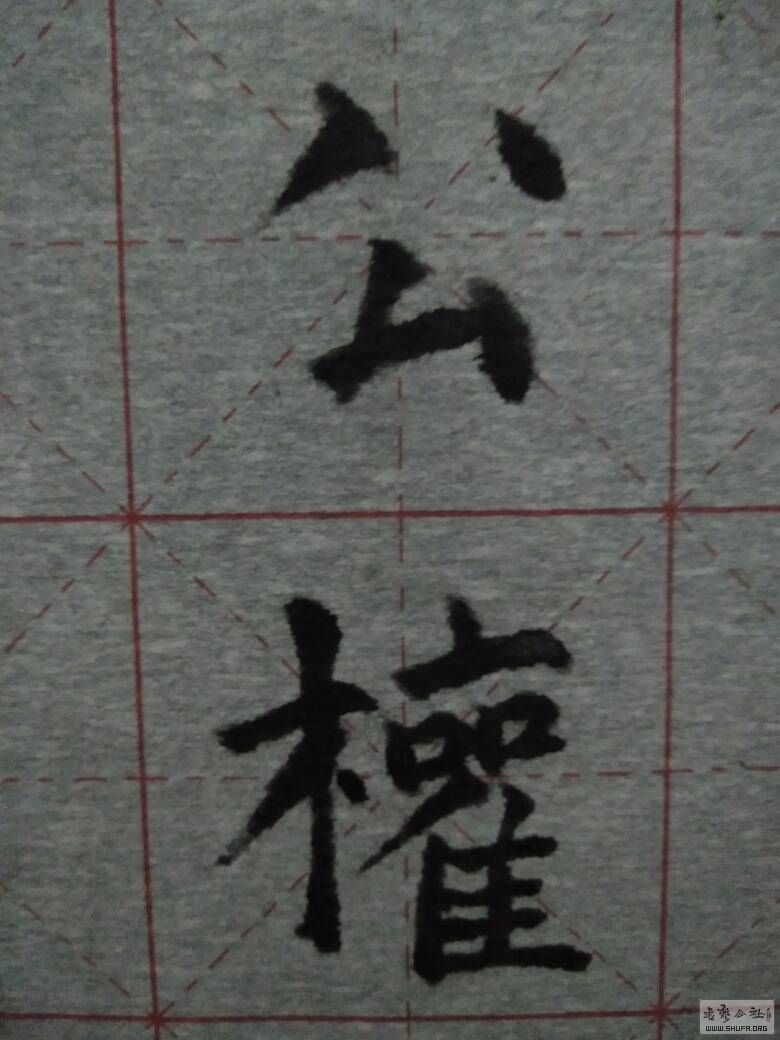 公
權
書藝公社
WWW.SHUFA.ORG